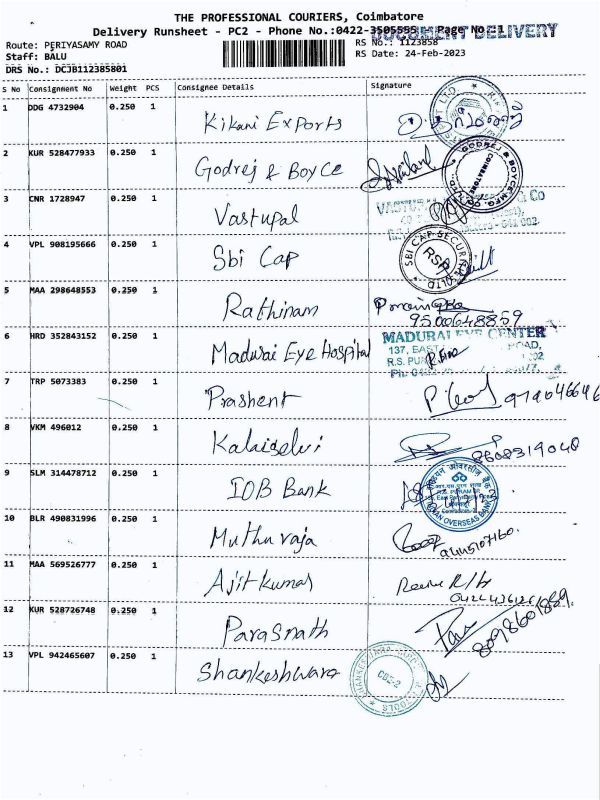 THE PROFESSIONAL COURIERS, Coimbatore
Delivery Runsheet - PC2 - Phone No.:0422-3505555 Page No.:1
DOCUMENT DELIVERY
Route: PERIYASAMY ROAD
RS No.: 1123858
Staff: BALU
RS Date: 24-Feb-2023
DRS No.: DCJB112385801
S No Consignment No Weight PCS Consignee Details Signature
1 DDG 4732904 0.250 1 Kikani Exports
2 KUR 528477933 0.250 1 Godrej & Boyce
GODREJ & BOYCE MFG. CO. LTD. COIMBATORE
3 CNR 1728947 0.250 1 Vastupal
& Co
641 002.
4 VPL 908195666 0.250 1 Sbi Cap
SBI CAP SECURITIES LTD RSP
5 MAA 298648553 0.250 1 Rathinam
9500648859
6 HRD 352843152 0.250 1 Madurai Eye Hospital
MADURAI EYE CENTER
137, EAST ROAD,
R.S. PURAM
7 TRP 5073383 0.250 1 Prashent
8 VKM 496012 0.250 1 Kalaiselvi
8608319048
9 SLM 314478712 0.250 1 IOB Bank
INDIAN OVERSEAS BANK
10 BLR 490831996 0.250 1 Muthuraja
11 MAA 569526777 0.250 1 Ajitkumar
12 KUR 528726748 0.250 1 Parasnath
8098601889.
13 VPL 942465607 0.250 1 Shankeshwara
CBE-2